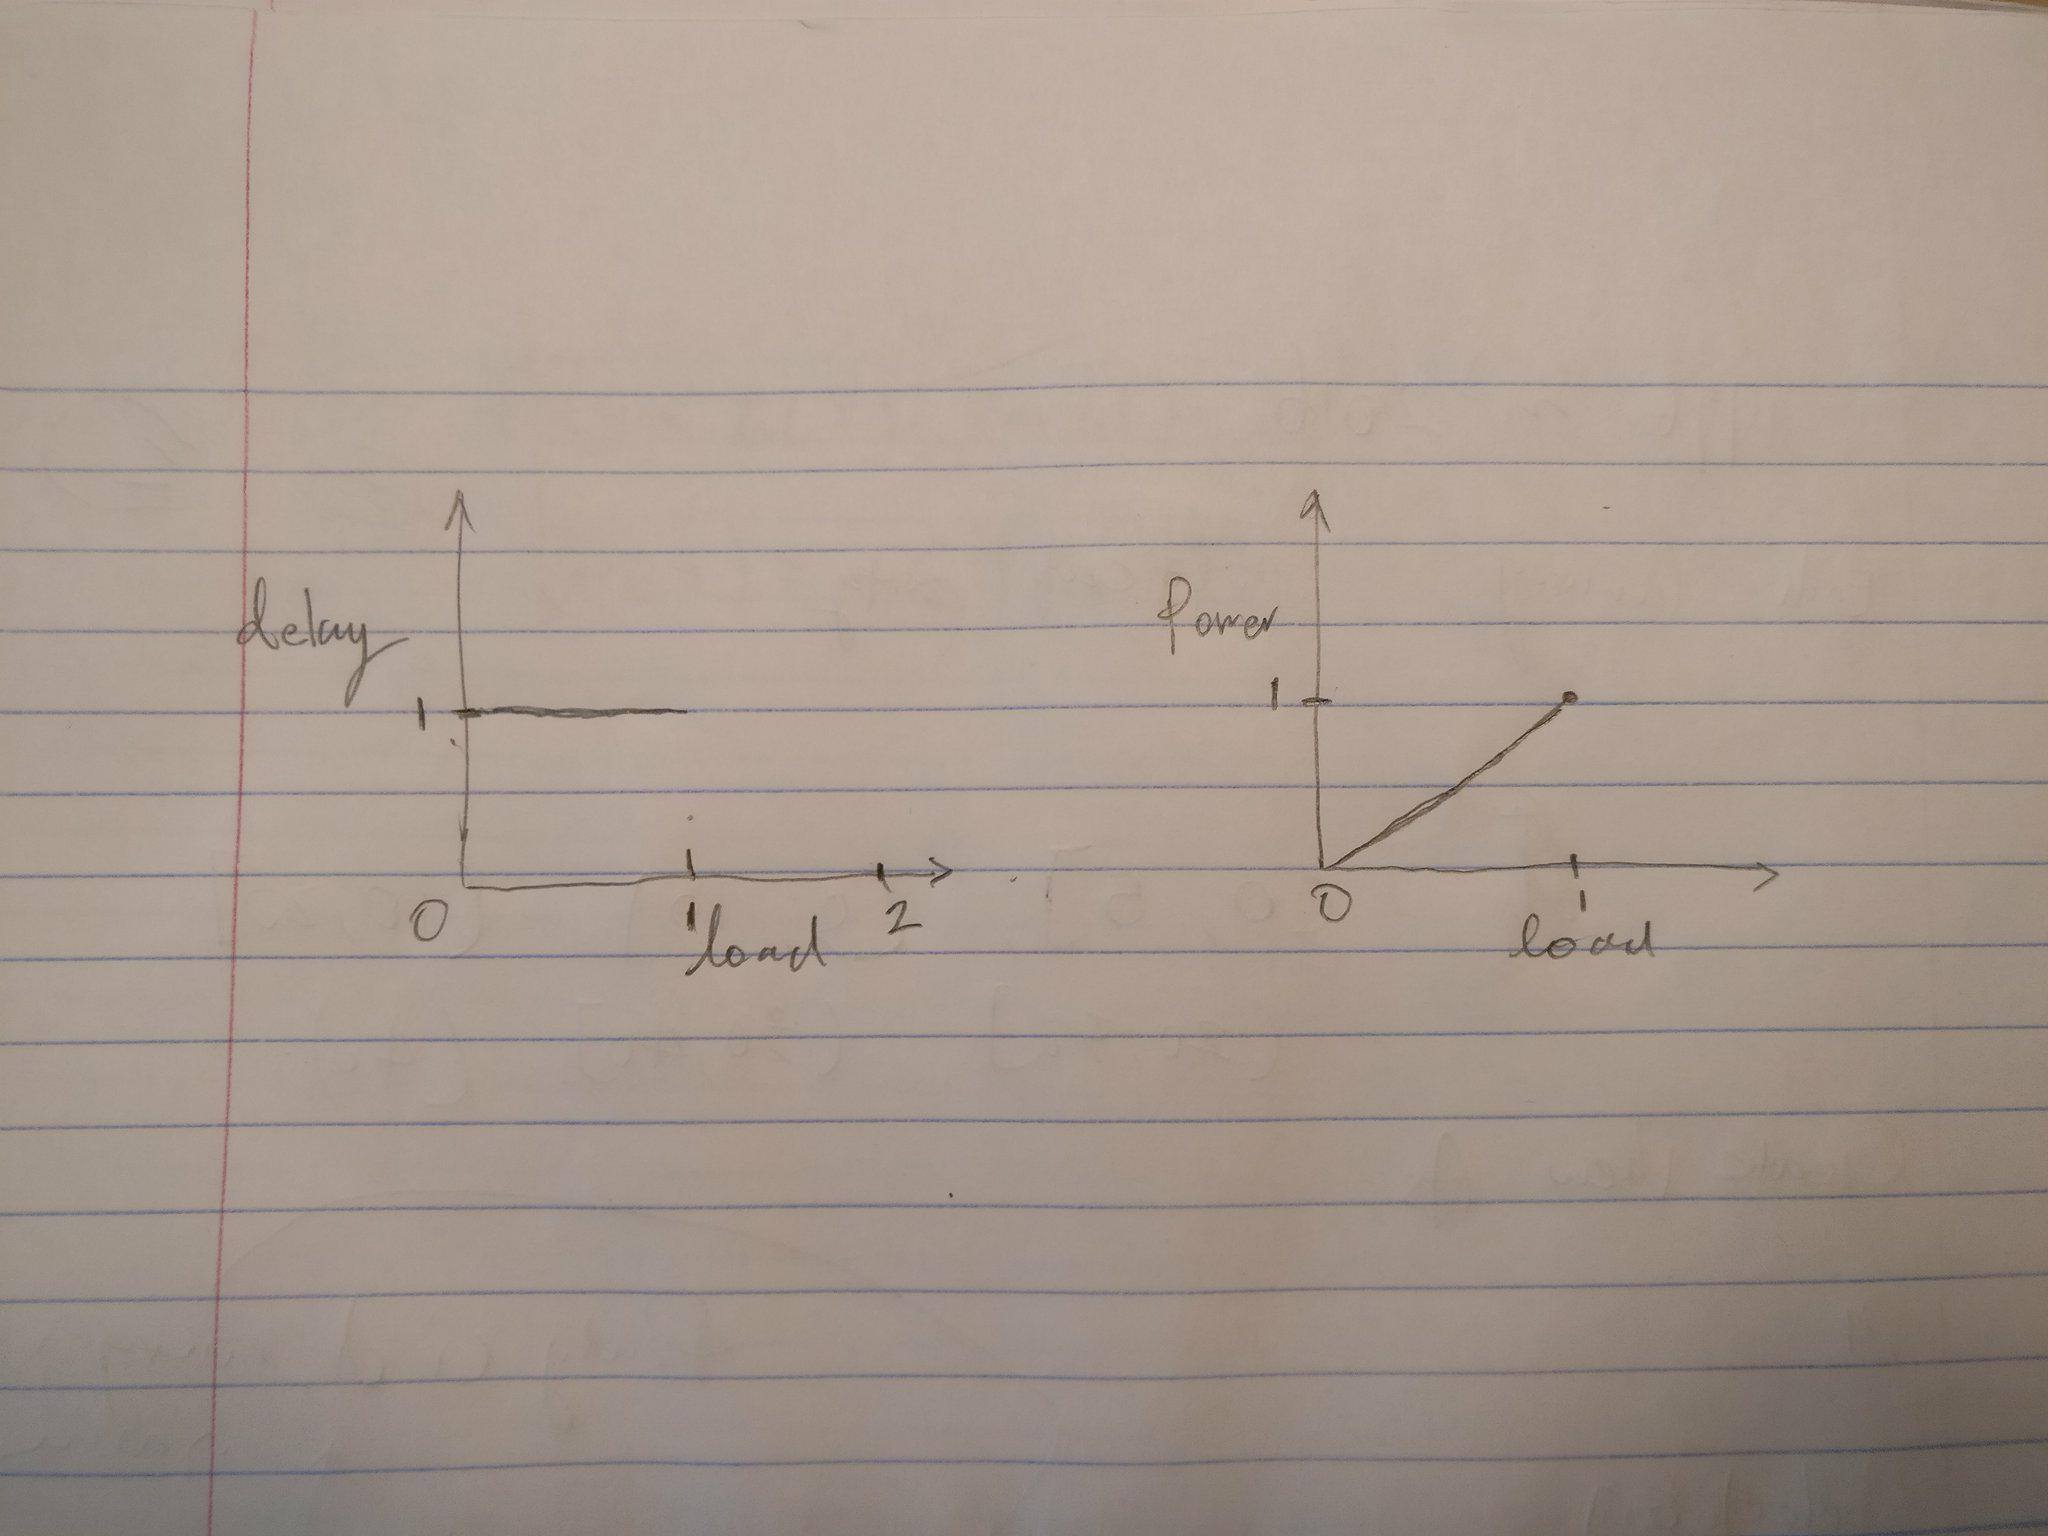 delay
1
0
1
2
load
Power
1
0
1
load